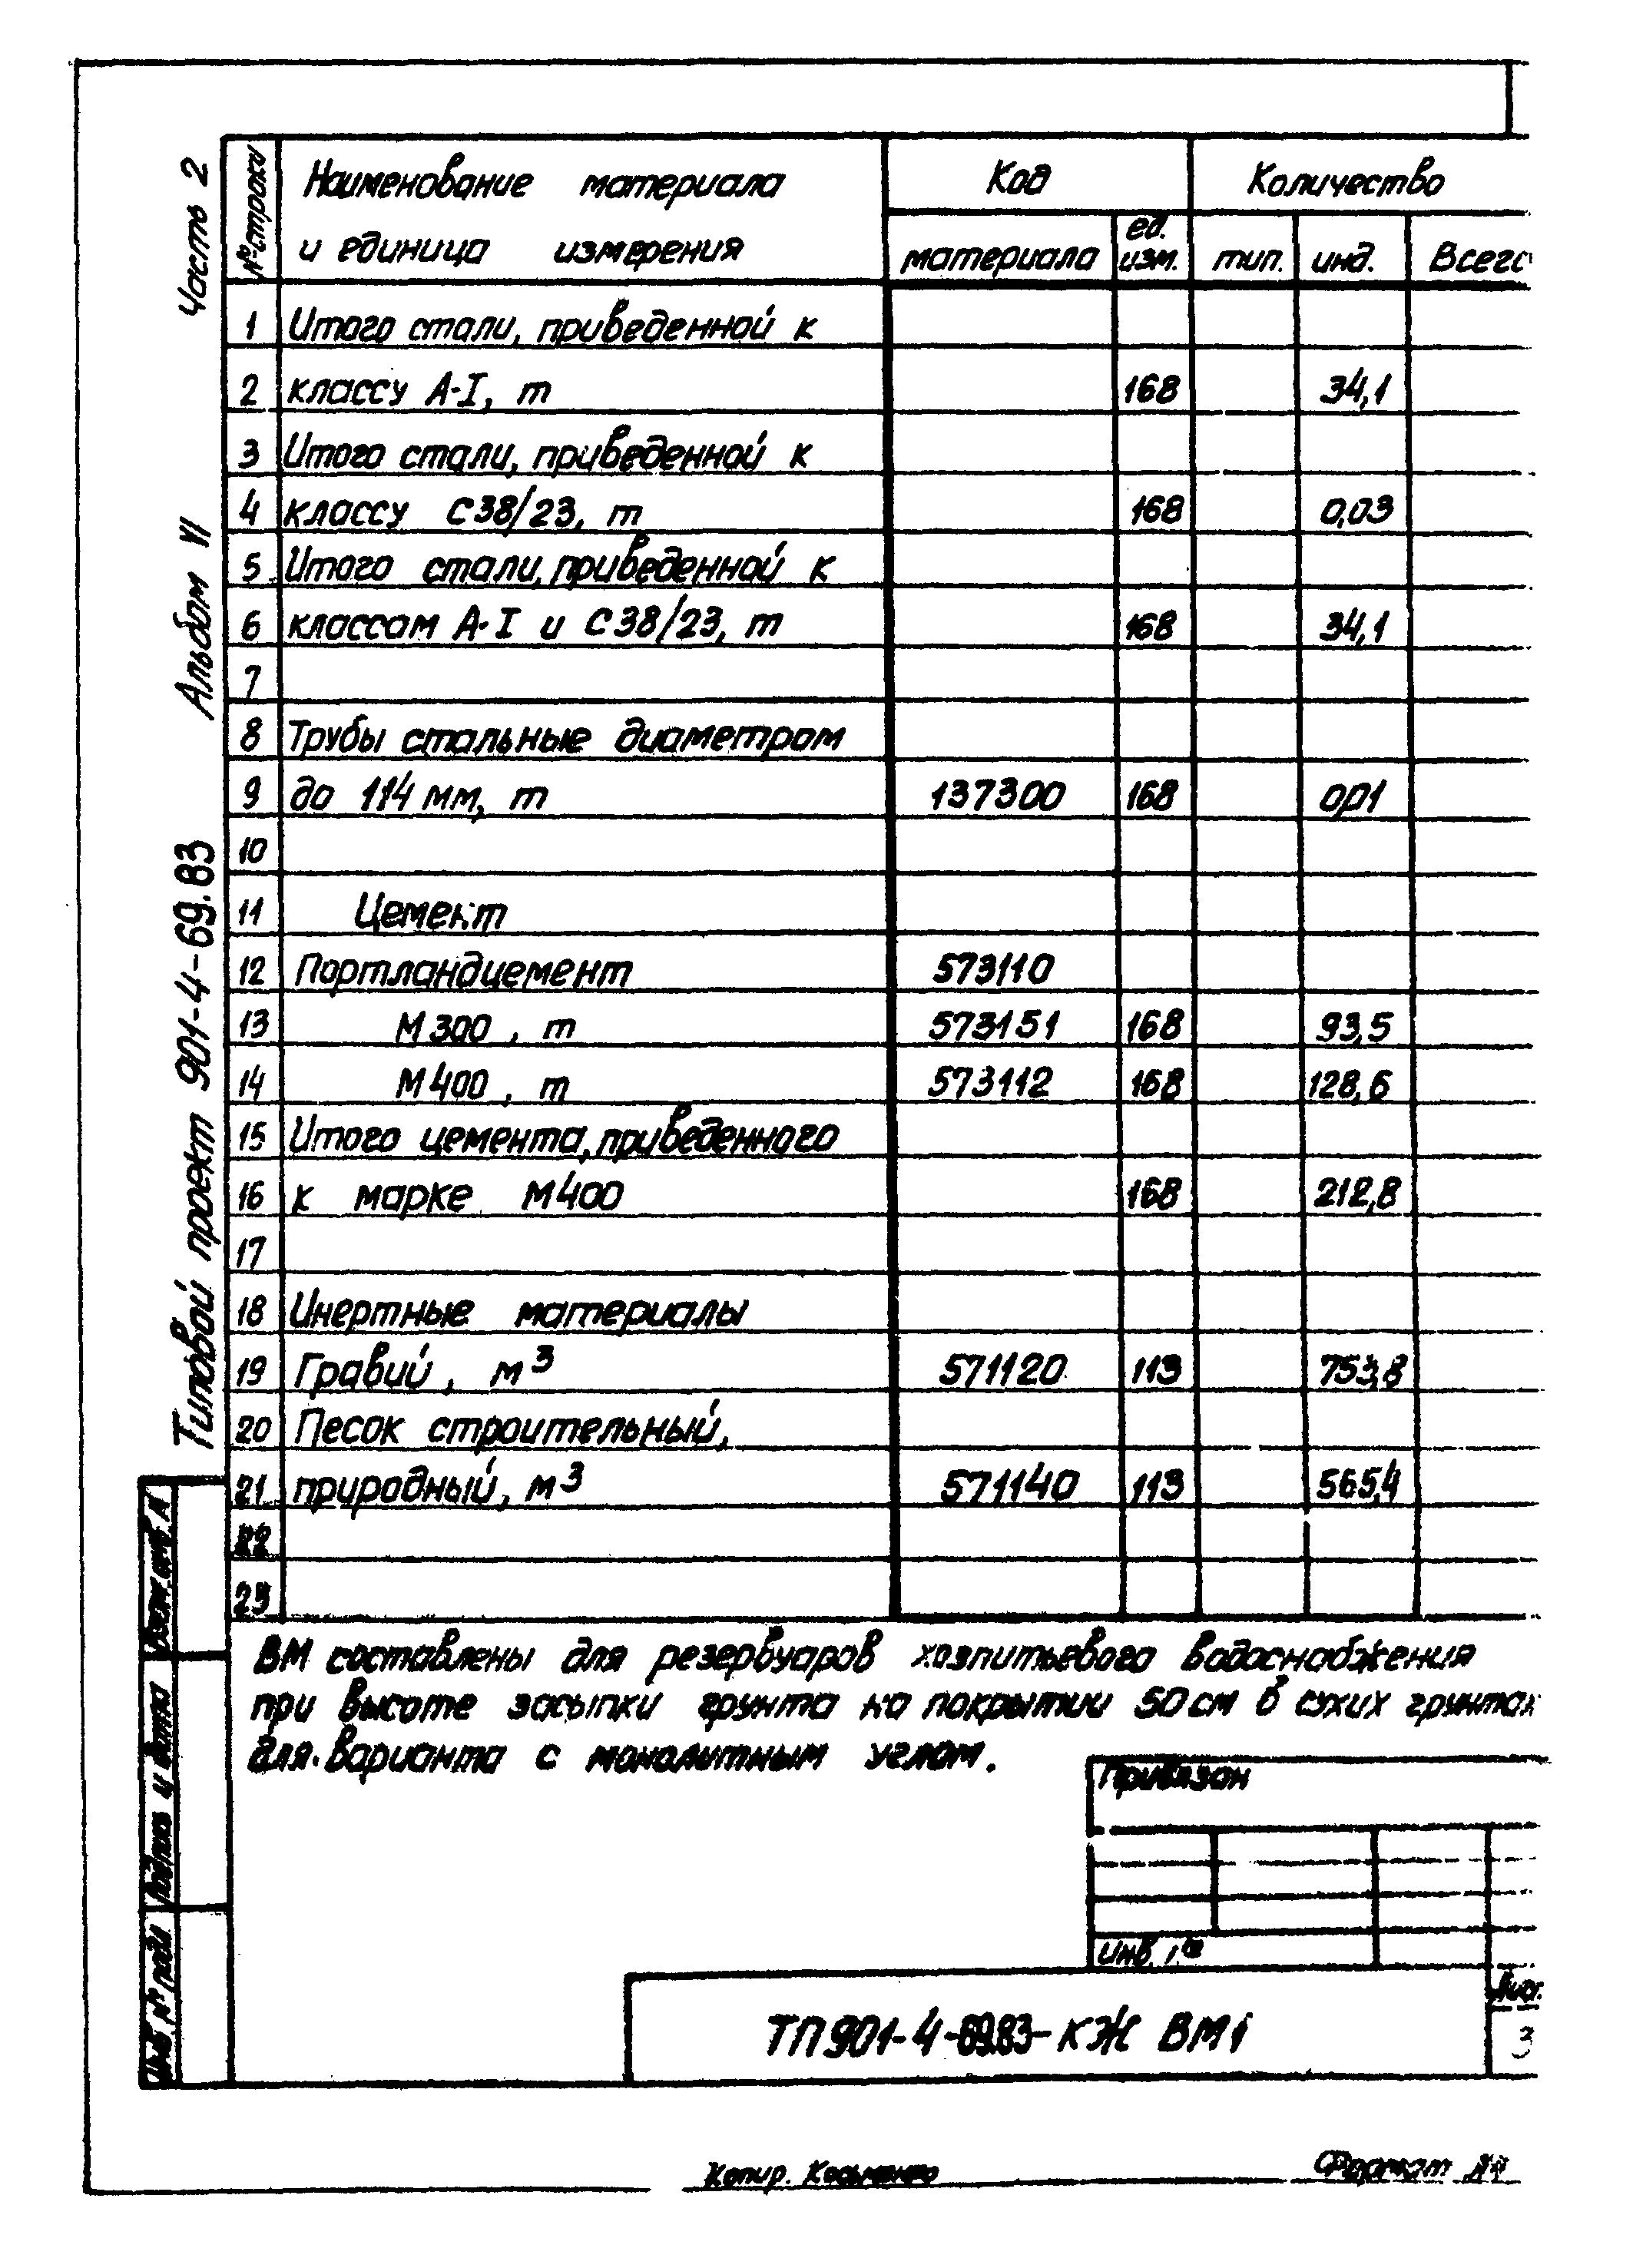 Типовой проект 901-4-69.83 Альбом VI Часть 2
№ строки Наименование материала Код Количество
и единица измерения материала ед. изм. тип. инд. Всего
1 Итого стали, приведенной к
2 классу А-I, т 168 34,1
3 Итого стали, приведенной к
4 классу С38/23, т 168 0,03
5 Итого стали, приведенной к
6 классам А-I и С38/23, т 168 34,1
7
8 Трубы стальные диаметром
9 до 114 мм, т 137300 168 0,01
10
11 Цемент
12 Портландцемент 573110
13 М300, т 573151 168 93,5
14 М400, т 573112 168 128,6
15 Итого цемента, приведенного
16 к марке М400 168 212,8
17
18 Инертные материалы
19 Гравий, м3 571120 113 753,8
20 Песок строительный,
21 природный, м3 571140 113 565,4
22
23
ВМ составлены для резервуаров хозпитьевого водоснабжения
при высоте засыпки грунта на покрытии 50 см в сухих грунтах
для варианта с монолитным углом.
Привязан
Инв. №
ТП 901-4-69.83-КЖ ВМ1
Лист
3
Взам. инв. №
Подпись и дата
Инв № подл
Копир. Косьменко
Формат А4